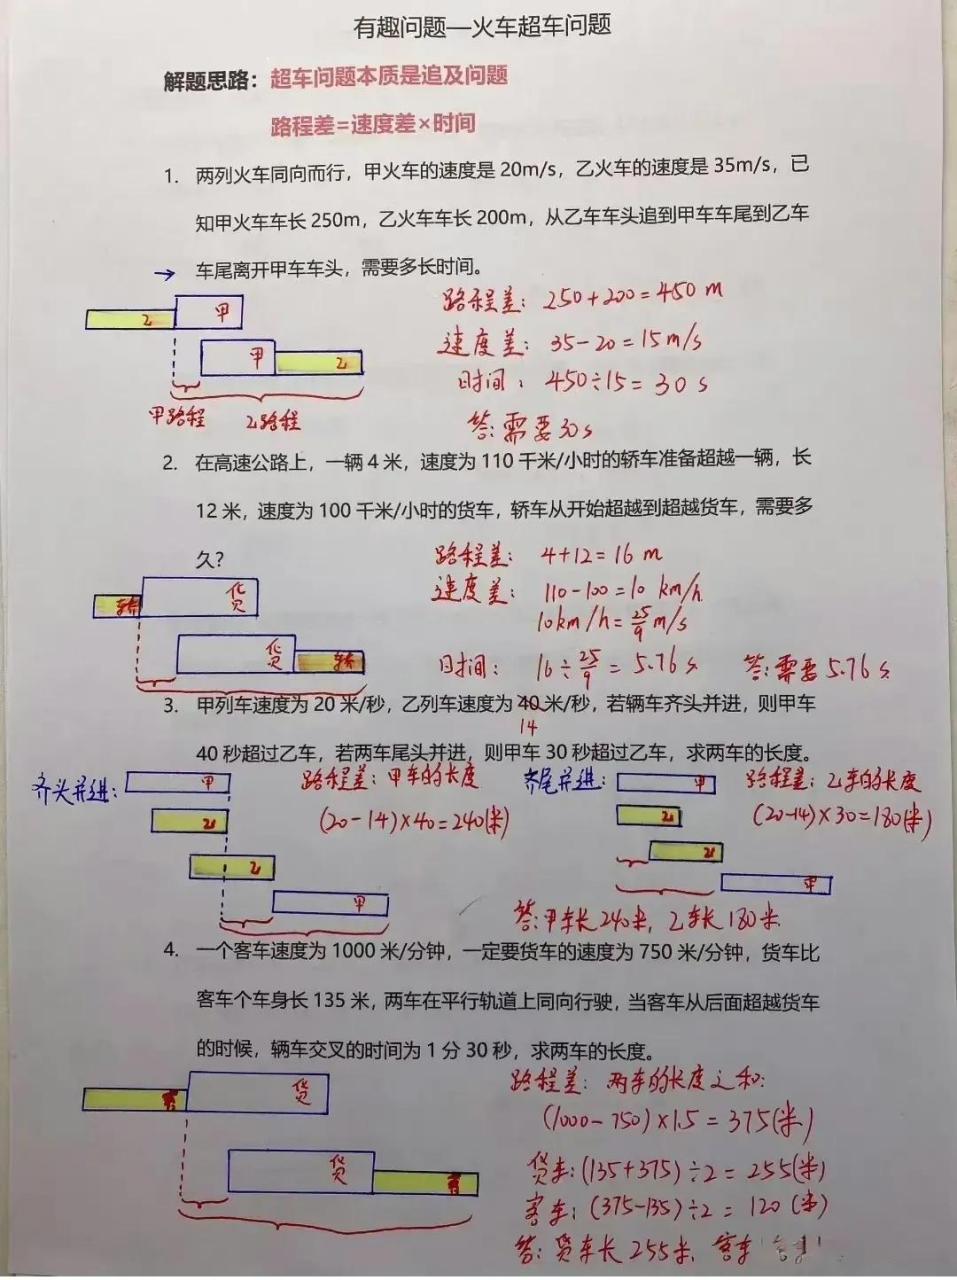 有趣问题—火车超车问题
解题思路：超车问题本质是追及问题
路程差=速度差×时间
1. 两列火车同向而行，甲火车的速度是20m/s，乙火车的速度是35m/s，已
知甲火车车长250m，乙火车车长200m，从乙车车头追到甲车车尾到乙车
车尾离开甲车车头，需要多长时间。
路程差：250+200=450 m
乙 甲
速度差：35-20=15m/s
甲 乙
时间：450÷15=30 s
甲路程 乙路程
答：需要30s
2. 在高速公路上，一辆4米，速度为110千米/小时的轿车准备超越一辆，长
12米，速度为100千米/小时的货车，轿车从开始超越到超越货车，需要多
久？
路程差：4+12=16 m
轿 货
速度差：110-100=10 km/h
10km/h=25/9 m/s
货 轿
时间：16÷25/9=5.76 s 答：需要5.76 s
3. 甲列车速度为20米/秒，乙列车速度为40米/秒，若辆车齐头并进，则甲车
14
40秒超过乙车，若两车尾头并进，则甲车30秒超过乙车，求两车的长度。
齐头并进： 甲 路程差：甲车的长度
乙 (20-14)×40=240(米)
乙
甲
齐尾并进： 甲 路程差：乙车的长度
乙 (20-14)×30=180(米)
乙
甲
答：甲车长240米，乙车长180米
4. 一个客车速度为1000米/分钟，一定要货车的速度为750米/分钟，货车比
客车个车身长135米，两车在平行轨道上同向行驶，当客车从后面超越货车
的时候，辆车交叉的时间为1分30秒，求两车的长度。
路程差：两车的长度之和：
客 货
(1000-750)×1.5=375(米)
货 客
货车：(135+375)÷2=255(米)
客车：(375-135)÷2=120(米)
答：货车长255米，客车